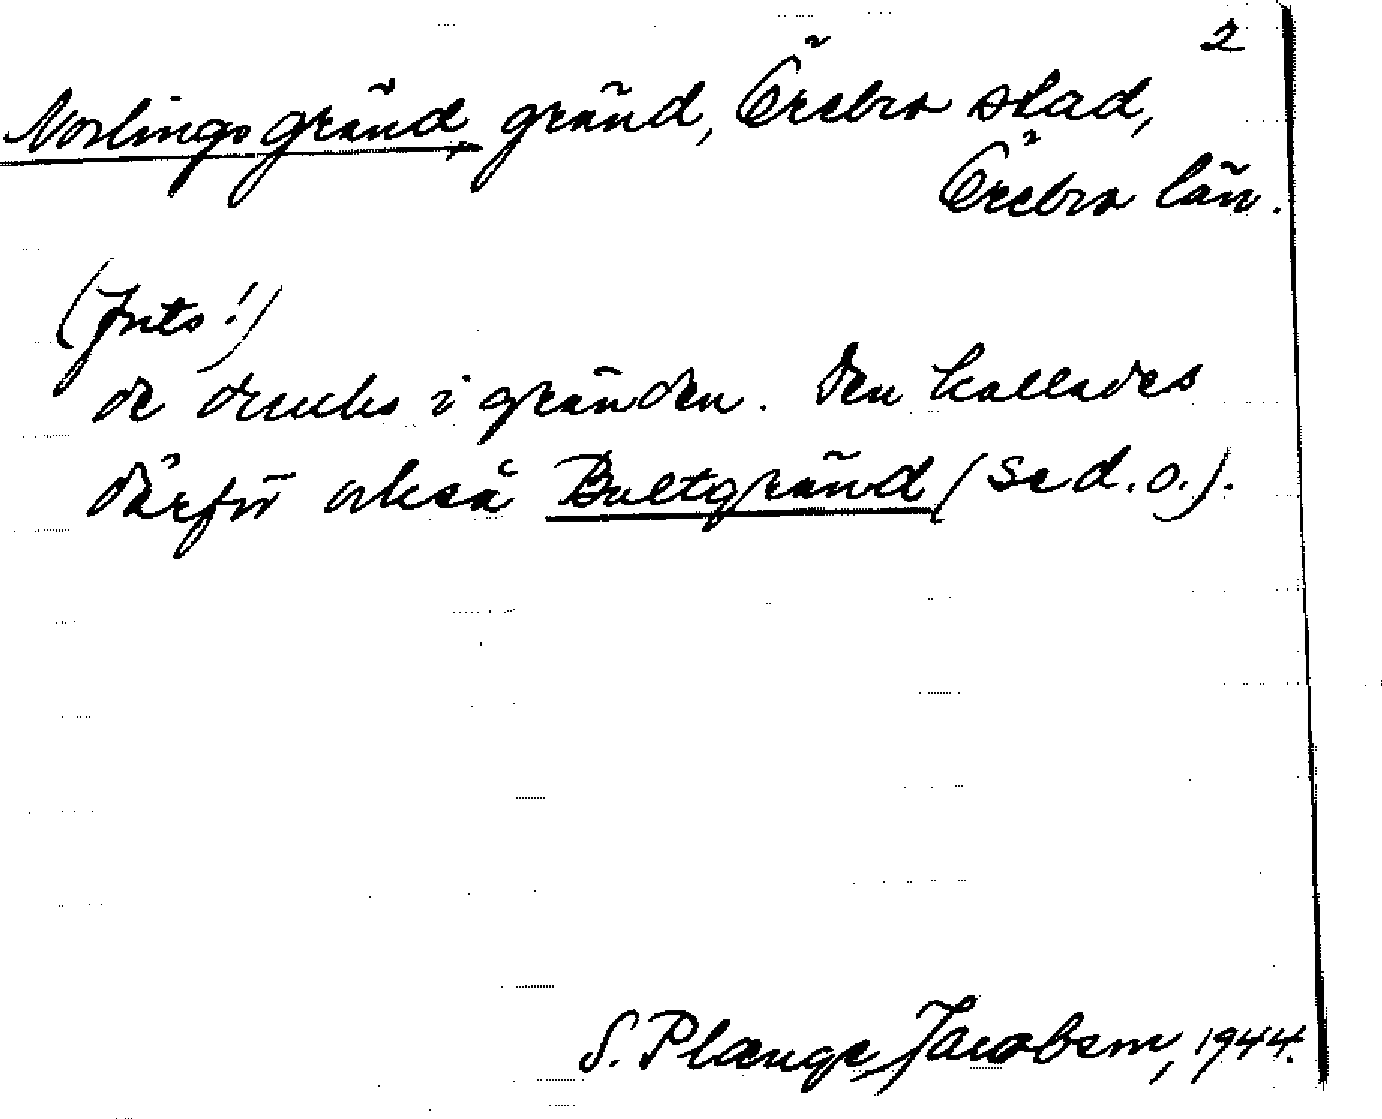 2
Norlingsgränd, gränd, Örebro stad,
Örebro län.
(forts!)
de drucks i gränden. Den kallades
därför också Bultgränd (se d. o.).
S. Plænge Jacobson, 1944.